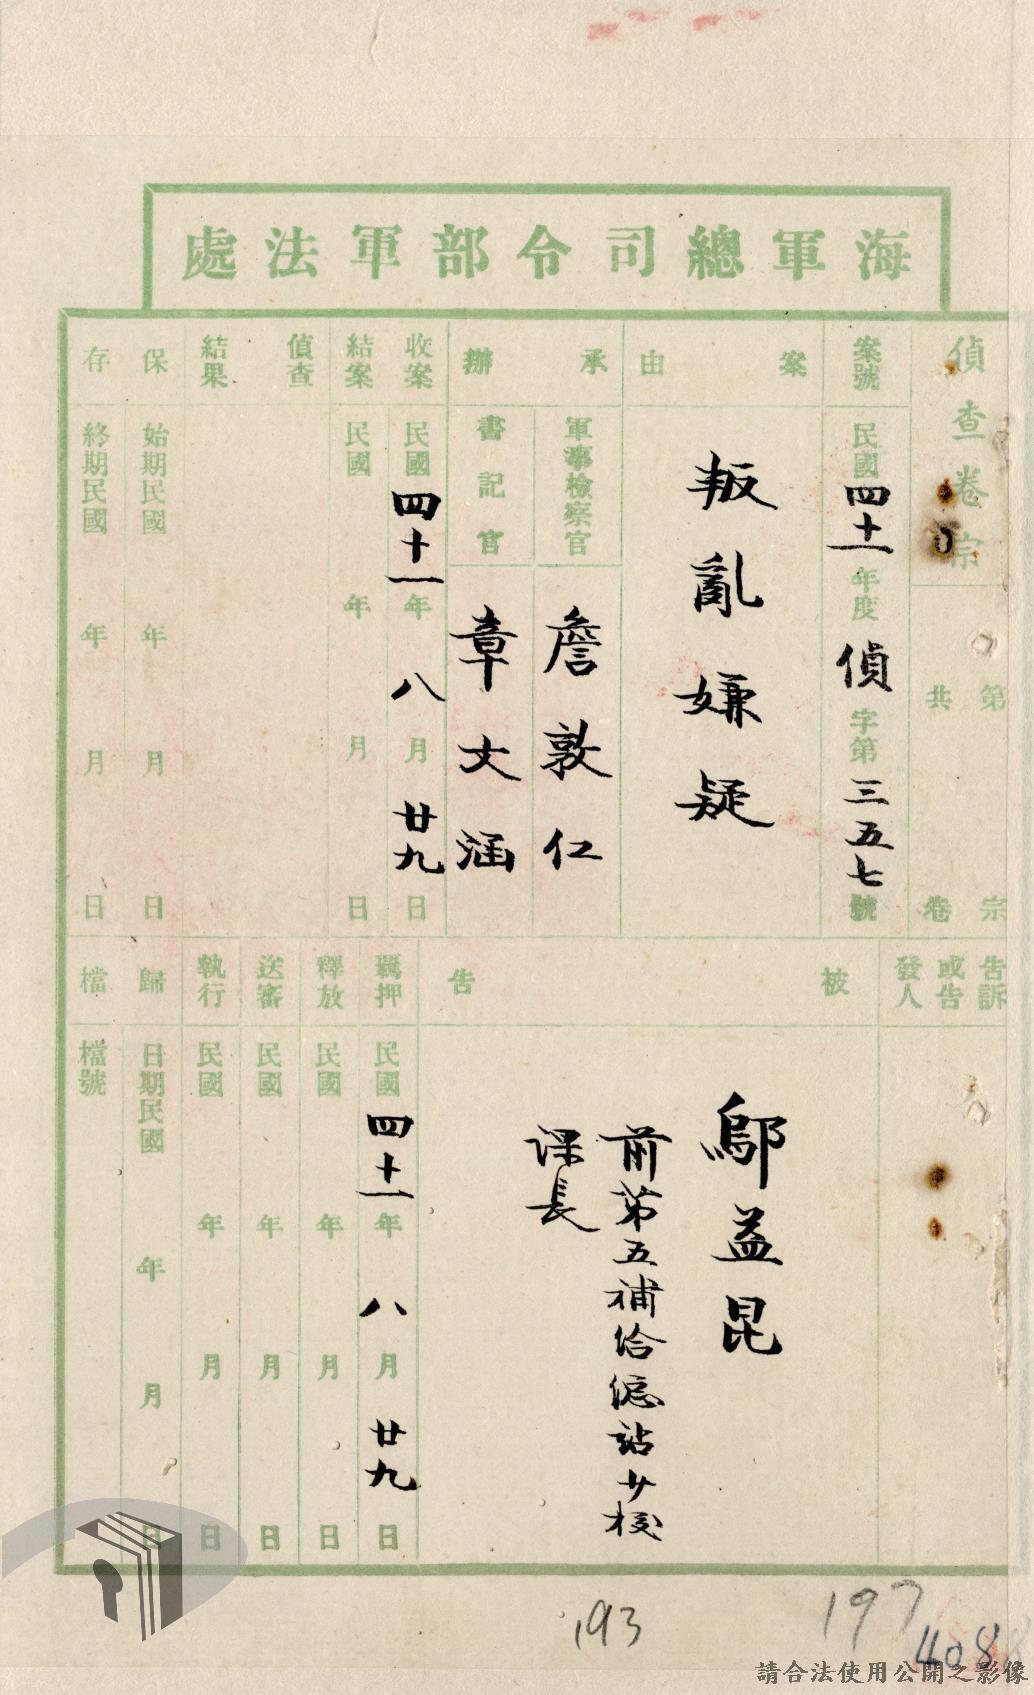 海軍總司令部軍法處
偵查卷宗
第 宗
共 卷
案號
民國四十一年度偵字第三五七號
案由
叛亂嫌疑
承辦
軍事檢察官
詹敦仁
書記官
章文涵
收案
民國四十一年八月廿九日
結案
民國 年 月 日
偵查
結果
保存
始期民國 年 月 日
終期民國 年 月 日
告訴
或告
發人
被告
鄔益昆
前第五補給總站少校
課長
羈押
民國四十一年八月廿九日
釋放
民國 年 月 日
送審
民國 年 月 日
執行
民國 年 月 日
歸檔
日期民國 年 月 日
檔號
193
197
408
請合法使用公開之影像